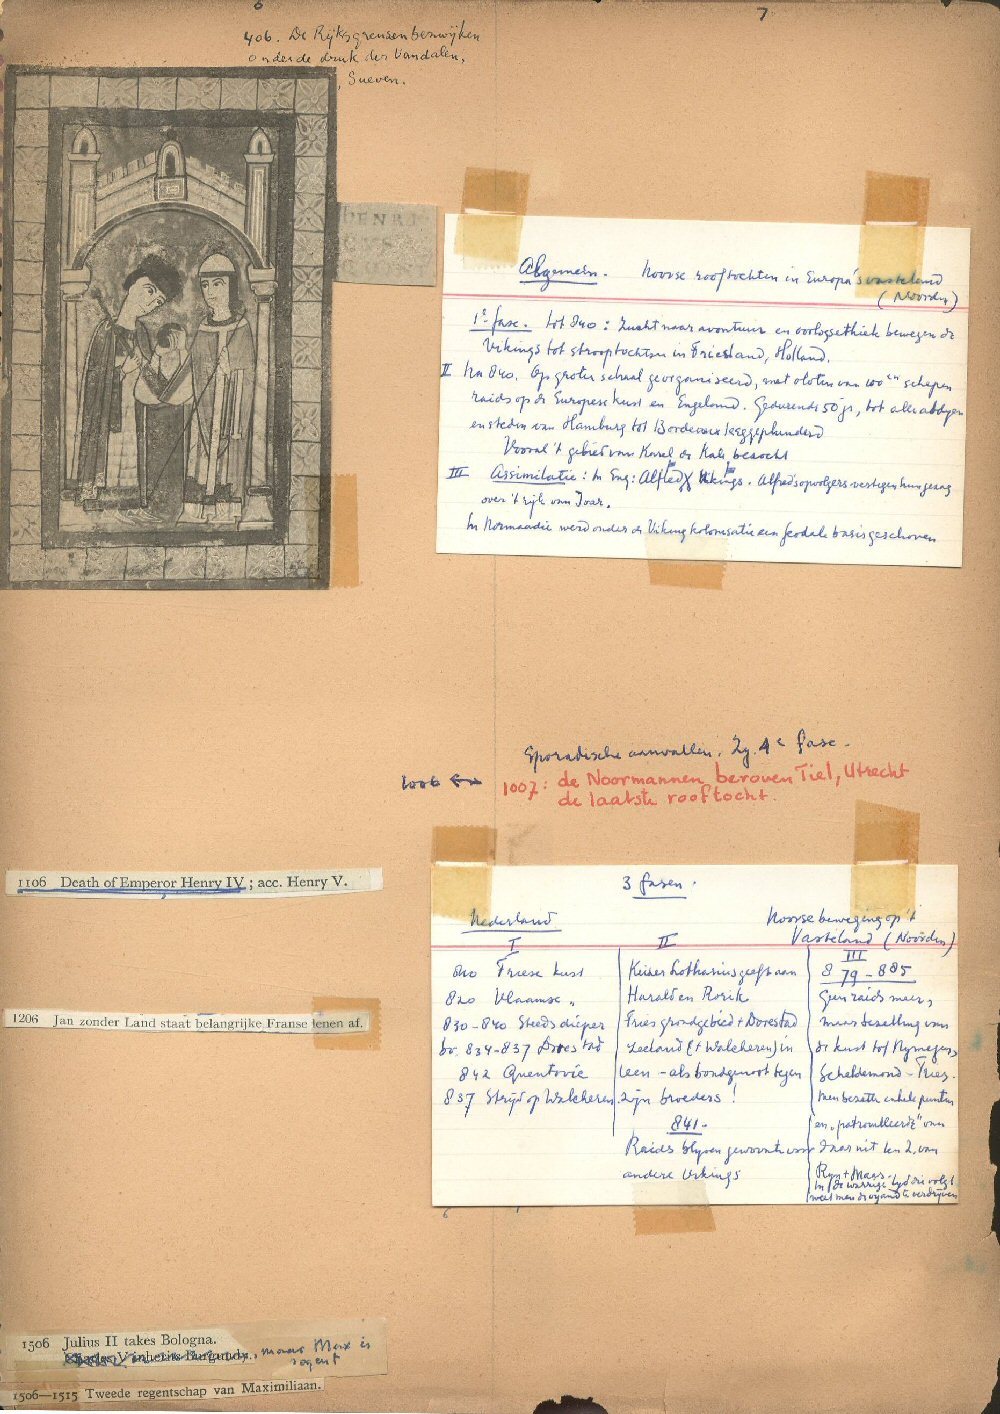 6
7
406. De Rijksgrenzen bezwijken
onder de druk der Vandalen,
, Sueven.
HENRI
Algemeen. Noorse rooftochten in Europa's vasteland
(Noorden)
1e fase. tot 840: zucht naar avontuur en oorlogsethiek bewegen de
Vikings tot strooptochten in Friesland, Holland.
II na 840. Op groter schaal georganiseerd, met vloten van 100en schepen
raids op de Europese kust en Engeland. Gedurende 50 jr, tot alle abdyen
en steden van Hamburg tot Bordeaux leeggeplunderd
Vooral 't gebied van Karel de Kale bezocht
III Assimilatie: In Eng: Alfred Vikings. Alfreds opvolgers vestigen hun gezag
over 't rijk van Ivar.
In Normandië werd onder de Viking kolonisatie een feodale basis geschoven
Sporadische aanvallen. Zg. 4e fase.
1006
1007: de Noormannen beroven Tiel, Utrecht
de laatste rooftocht.
1106 Death of Emperor Henry IV; acc. Henry V.
3 fasen.
Nederland
Noorse beweging op 't
Vasteland (Noorden)
I
810 Friese kust
820 Vlaamse "
830-840 Steeds dieper
bv. 834-837 Dorestad
842 Quentovic
837 Strijd op Walcheren
II
Keizer Lotharius geeft aan
Harald en Rorik
Fries grondgebied + Dorestad
Zeeland (+ Walcheren) in
leen - als bondgenoot tegen
zijn broeders!
841-
Raids blyven gewoonte voor
andere Vikings
III
879-885
Geen raids meer,
maar bezetting van
de kust tot Nymegen,
Scheldemond - Fries.
Men bezette enkele punten
en "patrouilleerde" van
daar uit ten Z. van
Ryn + Maas.
In de warrige tyd die volgt
weet men de vyand te verdrijven
1206 Jan zonder Land staat belangrijke Franse lenen af.
1506 Julius II takes Bologna.
Charles V inherits Burgundy, maar Max is
regent
1506—1515 Tweede regentschap van Maximiliaan.